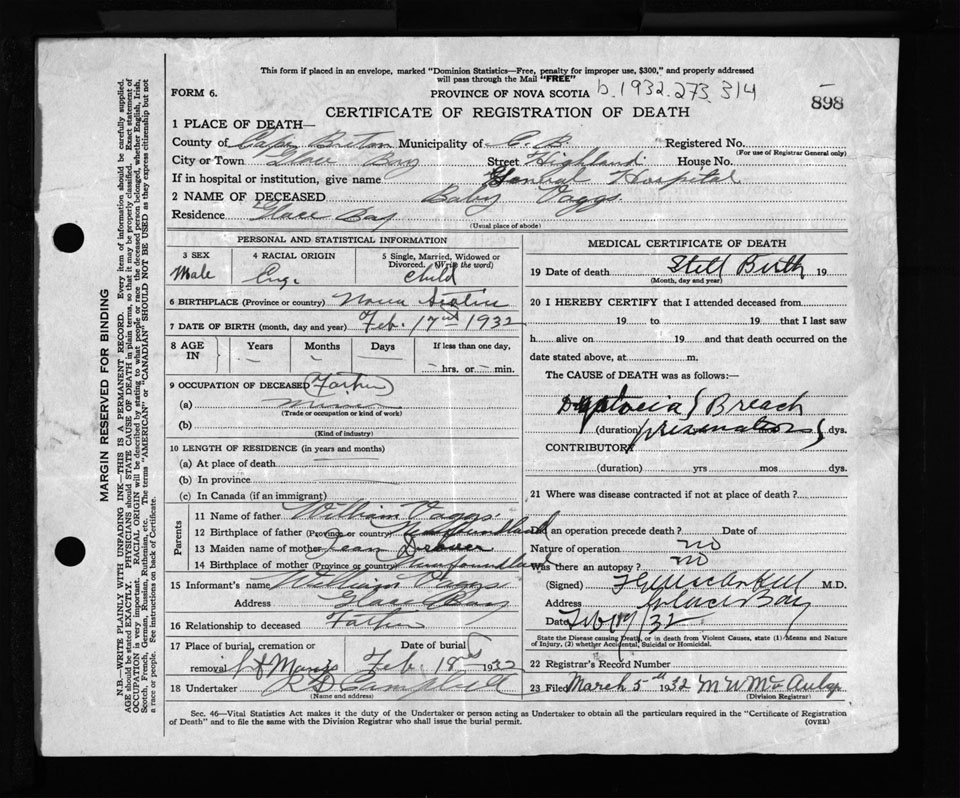 This form if placed in an envelope, marked "Dominion Statistics—Free, penalty for improper use, $300," and properly addressed
will pass through the Mail "FREE"
FORM 6. PROVINCE OF NOVA SCOTIA b.1932.273.314
898
CERTIFICATE OF REGISTRATION OF DEATH
1 PLACE OF DEATH—
County of Cape Breton Municipality of C.B. Registered No.
(For use of Registrar General only)
City or Town Glace Bay Street Highland House No.
If in hospital or institution, give name General Hospital
2 NAME OF DECEASED Baby Vaggs.
Residence Glace Bay
(Usual place of abode)
PERSONAL AND STATISTICAL INFORMATION
3 SEX 4 RACIAL ORIGIN 5 Single, Married, Widowed or
Divorced. (Write the word)
Male Eng. Child
6 BIRTHPLACE (Province or country) Nova Scotia
7 DATE OF BIRTH (month, day and year) Feb. 17 1932
8 AGE IN Years Months Days If less than one day,
— — — — hrs. or — min.
9 OCCUPATION OF DECEASED Father
(a)
(Trade or occupation or kind of work)
(b)
(Kind of industry)
10 LENGTH OF RESIDENCE (in years and months)
(a) At place of death
(b) In province
(c) In Canada (if an immigrant)
Parents
11 Name of father William Vaggs.
12 Birthplace of father (Province or country) Newfoundland
13 Maiden name of mother Jean
14 Birthplace of mother (Province or country) Newfoundland
15 Informant's name William Vaggs.
Address Glace Bay
16 Relationship to deceased Father
17 Place of burial, cremation or Date of burial
removal Feb. 18 1932
18 Undertaker Campbell
(Name and address)
MEDICAL CERTIFICATE OF DEATH
19 Date of death Still Birth 19
(Month, day and year)
20 I HEREBY CERTIFY that I attended deceased from
19 to 19 that I last saw
h alive on 19 and that death occurred on the
date stated above, at m.
The CAUSE of DEATH was as follows:—
Dystocia Breach
(duration) presentation dys.
CONTRIBUTORY
(duration) yrs mos dys.
21 Where was disease contracted if not at place of death?
Did an operation precede death? Date of
Nature of operation no
Was there an autopsy? no
(Signed) M.D.
Address Glace Bay
Date Feb /32
State the Disease causing Death, or in death from Violent Causes, state (1) Means and Nature
of Injury, (2) whether Accidental, Suicidal or Homicidal.
22 Registrar's Record Number
23 Filed March 5th 1932 M W McAulay
(Division Registrar)
Sec. 46—Vital Statistics Act makes it the duty of the Undertaker or person acting as Undertaker to obtain all the particulars required in the "Certificate of Registration
of Death" and to file the same with the Division Registrar who shall issue the burial permit. (OVER)
MARGIN RESERVED FOR BINDING
N.B.—WRITE PLAINLY WITH UNFADING INK—THIS IS A PERMANENT RECORD. Every item of information should be carefully supplied.
AGE should be stated EXACTLY. PHYSICIANS should STATE CAUSE OF DEATH in plain terms, so that it may be properly classified. Exact statement of
OCCUPATION is very important. RACIAL ORIGIN will be described by stating to what people or race the deceased person belonged, whether English, Irish,
Scotch, French, German, Russian, Ruthenian, etc. The terms "AMERICAN" or "CANADIAN" SHOULD NOT BE USED as they express citizenship but not
a race or people. See instructions on back of Certificate.